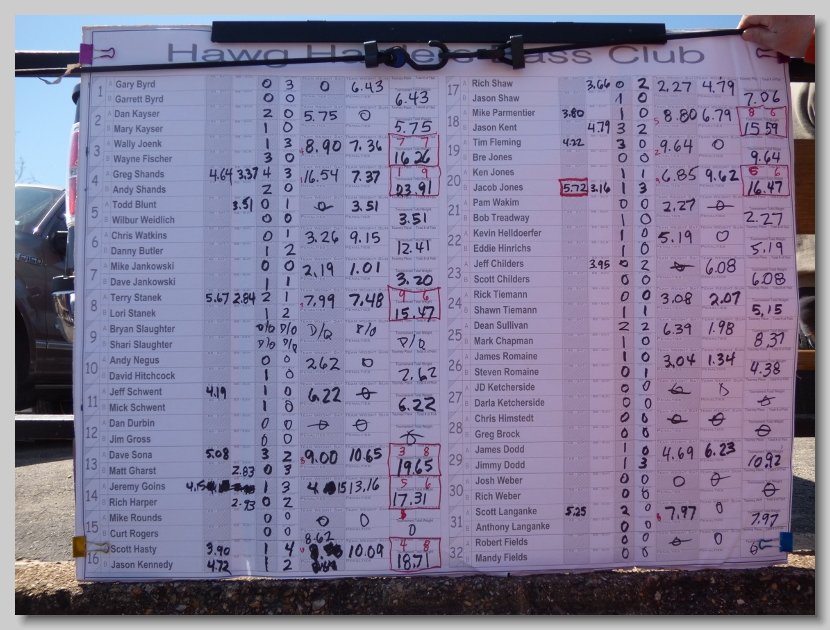 Hawg Bass Club
1 A Gary Byrd 0 3 0 6.43
B Garrett Byrd 0 0 6.43
2 A Dan Kayser 2 0 5.75 0
B Mary Kayser 1 0 5.75
3 A Wally Joenk 1 3 8.90 7.36 7 7
B Wayne Fischer 3 0 16.26
4 A Greg Shands 4.64 3.37 4 3 16.54 7.37 1 9
B Andy Shands 2 0 23.91
5 A Todd Blunt 3.51 0 1 0 3.51
B Wilbur Weidlich 0 0 3.51
6 A Chris Watkins 0 1 3.26 9.15
B Danny Butler 1 2 12.41
7 A Mike Jankowski 0 0 2.19 1.01
B Dave Jankowski 1 1 3.20
8 A Terry Stanek 5.67 2.84 2 1 7.99 7.48 9 6
B Lori Stanek 1 2 15.47
9 A Bryan Slaughter D/Q D/Q D/Q D/Q
B Shari Slaughter D/Q D/Q D/Q
10 A Andy Negus 0 0 2.62 0
B David Hitchcock 1 0 2.62
11 A Jeff Schwent 4.19 1 0 6.22 0
B Mick Schwent 1 0 6.22
12 A Dan Durbin 0 0 0 0
B Jim Gross 0 0 0
13 A Dave Sona 5.08 3 2 9.00 10.65 3 8
B Matt Gharst 2.83 0 3 19.65
14 A Jeremy Goins 4.15 1 3 4.15 13.16 5 6
B Rich Harper 2.73 0 2 17.31
15 A Mike Rounds 0 0 0 0
B Curt Rogers 0 0 0
16 A Scott Hasty 3.90 1 4 8.62 10.09 4 8
B Jason Kennedy 4.72 1 2 18.71
17 A Rich Shaw 3.66 0 2 2.27 4.79
B Jason Shaw 1 0 7.06
18 A Mike Parmentier 3.80 1 0 8.80 6.79 8 6
B Jason Kent 4.79 3 2 15.59
19 A Tim Fleming 4.22 3 0 9.64 0
B Bre Jones 0 0 9.64
20 A Ken Jones 1 1 6.85 9.62 6 6
B Jacob Jones 5.72 3.16 1 3 16.47
21 A Pam Wakim 0 0 2.27 0
B Bob Treadway 1 0 2.27
22 A Kevin Helldoerfer 1 0 5.19 0
B Eddie Hinrichs 1 0 5.19
23 A Jeff Childers 3.95 0 2 0 6.08
B Scott Childers 0 0 6.08
24 A Rick Tiemann 0 0 3.08 2.07
B Shawn Tiemann 1 1 5.15
25 A Dean Sullivan 2 2 6.39 1.98
B Mark Chapman 1 0 8.37
26 A James Romaine 1 0 3.04 1.34
B Steven Romaine 0 1 4.38
27 A JD Ketcherside 0 0 0 0
B Darla Ketcherside 0 0 0
28 A Chris Himstedt 0 0 0 0
B Greg Brock 0 0 0
29 A James Dodd 1 0 4.69 6.23
B Jimmy Dodd 1 3 10.92
30 A Josh Weber 0 0 0 0
B Rich Weber 0 0 0
31 A Scott Langanke 5.25 2 0 7.97 0
B Anthony Langanke 0 0 7.97
32 A Robert Fields 0 0 0 0
B Mandy Fields 0 0 0